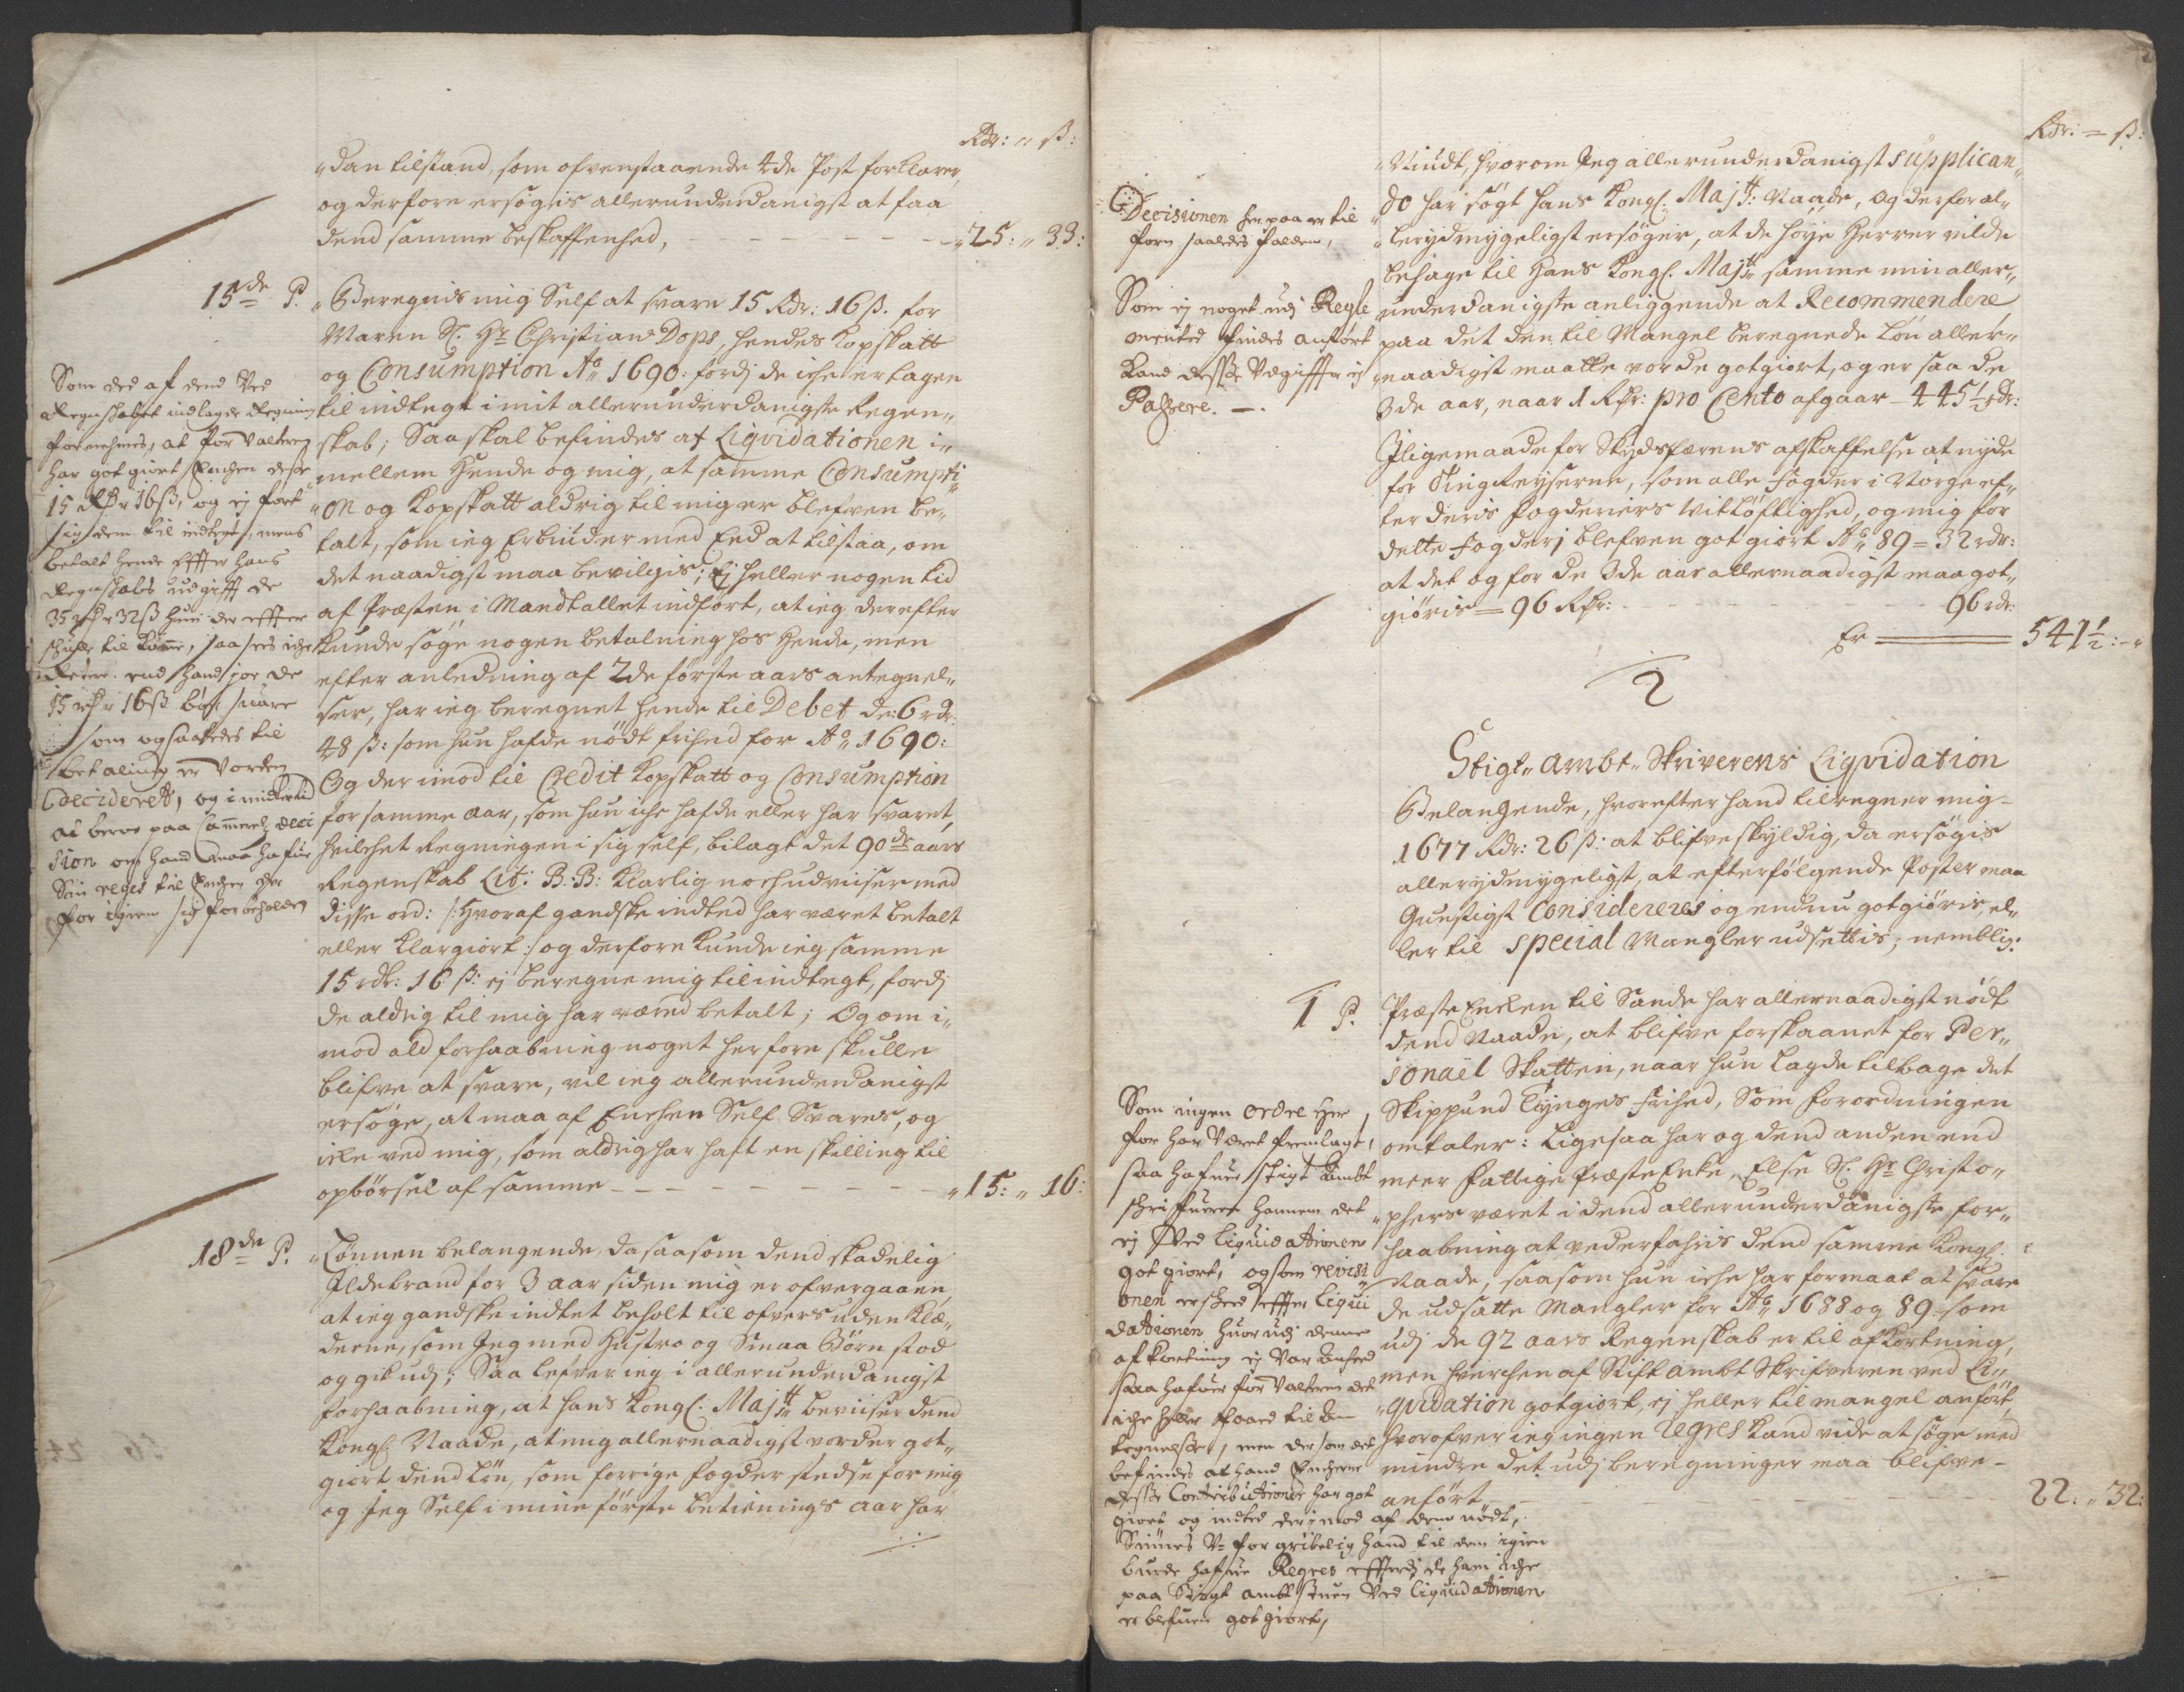 Rdr: „ ß:
„dan tilstand, som ofvenstaaende 4de Post forklarer,
og derfore ersøgis allerunderdanigst at faa
dend samme beskaffenhed, „25: „ 33:
15de P. „Beregnis mig Self at svare 15 Rdr: 16 ß. for
Maren Sl. Hr Christian Dops, hendes Kopskatt
og Consumption Ao 1690: fordj de iche er tagen
til indtegt i mit allerunderdanigste Regen„
skab; Saa skal befindes af Liqvidationen i„
mellem Hende og mig, at samme Consumpti„
„on og Kopskatt aldrig til mig er blefven be„
talt, som ieg Erbiuder med Eed at tilstaa, om
det naadigst maa bevilgis; Ej heller nogen tid
af Præsten i Mandtallet indført, at ieg derefter
kunde søge nogen betalning hos Hende, men
efter anledning af 2de første aars antegnel„
ser, har ieg beregnet hende til Debet de: 6 rdr:
48 ß: som hun hafde nødt frihed for Ao 1690:
Og der imod til Credit Kopskatt og Consumption
for samme aar, som hun iche hafde eller har svaret,
hvilchet Regningen i sig self, bilagt det 90de aars
Regenskab Lit: B:B: Klarlig noch udviiser med
disse ord: /: Hvoraf gandske indted har været betalt
eller Klargiort :/ og derfore kunde ieg samme
15 rdr: 16 ß: ej beregne mig til indtegt, fordj
de aldrig til mig har været betalt; Og om i„
mod ald forhaabning noget herfore skulle
blifve at svare, vil ieg allerunderdanigst
ersøge, at maa af Enchen Self Svares, og
icke ved mig, som aldrig har haft en skilling til
opbörsel af samme „15: „ 16:
Som ded af dend Ved
Regnskabet indlagde Regning
fornehmes, at for Valteren
har got giort Enchen disse
15 Rdr 16ß, og ej ført
sig dem til indtegt, mens
betalt hende effter hans
Regnskabs udgifft de
35 rdr 32ß hun der effter
skulle til komme, saa sees iche
Rettere end hand jo de
15 rdr 16ß bør suare
som og saaledes til
betaling er Vorden
decideret, og imidlertid
at beroe paa sammes deci
sion om hand maa hafue
Sin reges til Enchen her
for igien sig forbeholden
18de P. „Lønnen belangende, da saasom dend skadelig
Ildebrand for 3 aar siden mig er ofvergaaen,
at ieg gandske indtet beholt til ofvers uden Klæ„
derne, som Jeg med Hustro og Smaa Børn stod
og gik udj; Saa lefver ieg i allerunderdanigst
forhaabning, at hans Kongl. Majtt beviiser dend
Kongl. Naade, at mig allernaadigst vorder got„
giort dend Løn, som forrige fogder stedse for mig,
og Jeg Self i mine første betienings aar har
Rdr: = ß:
„Niudt, hvorom Jeg allerunderdanigst supplican„
„do har søgt hans Kongl. Majtt: Naade, og derfor al„
„lerydmygeligst ersøger, at de höje Herrer vilde
behage til Hans Kongl. Majtt samme min aller„
underdanigste anliggende at Recommendere
paa det den til Mangel beregnede løn aller„
naadigst maatte vorde gotgiort, og er saa de
3de aar, naar 1 Rdr: pro Cento afgaar - 445½ rdr:
Iligemaade for Skydsfærens afskaffelse at nyde
for Tingreyserne, som alle fogder i Norge ef„
ter deris fogderiers vitløftighed, og mig for
dette fogderj blefven gotgiort Ao 89 = 32 rdr:
at det og for de 3de aar allernaadigst maa got„
giøris = 96 Rdr: 96 rdr:
Er 541½: „
Decisionen her paa er til
forn saaledes falden,
Som ej noget udj Regle
mentet findes anført
kand disse Udgiffter ej
Passere. —.
2
Stigt„ Ambt„ Skriverens Liqvidation
Belangende, hvorefter hand tilregner mig
1677 Rdr: 26 ß: at blifve skyldig, da ersøgis
allerydmygeligst, at efterfølgende Poster maa
Gunstigst Considereres og endnu gotgiøris, el„
ler til special Mangler udsettis; nemblig:
1 P. Præste Encken til Sande har allernaadigst nødt
dend Naade, at blifve forskaanet for Per„
sonael Skatten, naar hun lagde tilbage det
Skippund Tynges frihed, Som forordningen
omtaler: Ligesaa har og dend anden end
meer fattige Præste Enke, Else Sl. Hr Christo„
„phers været i dend allerunderdanigste for„
haabning at vederfahris dend samme Kongl.
Naade, saasom hun iche har formaat at svare
de udsatte Mangler for Ao 1688 og 89 som
udj de 92 aars Regenskab er til afkortning,
men hverchen af Stift Ambt Skrifveren ved Li„
„qvidation gotgiort, ej heller til mangel anført,
hvorofver ieg ingen regres kand vide at søge med
mindre det udj beregninger maa blifve
anført 22: „ 32:
Som ingen ordre her
for har Veret fremlagt,
saa hafuer Stigt Ambt
schriffueren hannem det
ej Ved Liquidationen
got giort, og som revisi
onen er skeed effter Liqui
dationen, huor udj denne
afkortning ej Var anført
saa hafuer for Valteren det
iche heller faaed til An
tegnelse, men der som det
befindes at hand Encherne
disse Contributioner har got
giort og indted derimod af dem nødt,
Siunes Vforgribelig hand til dem igien
burde hafue Regres effterdj de ham iche
paa Stigt Ambtstuen Ved Liquidationen
er blefuen got giort,